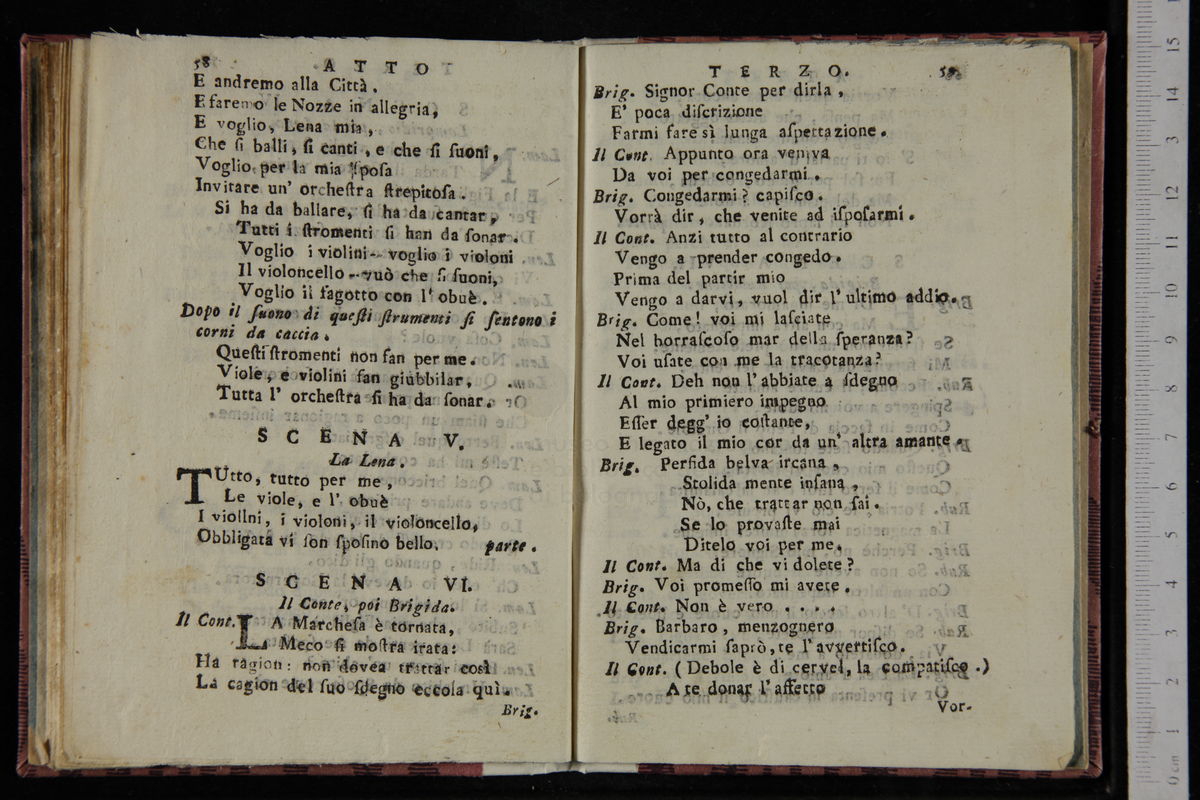 58 ATTO
E andremo alla Città.
E faremo le Nozze in allegria,
E voglio, Lena mia,
Che ſi balli, ſi canti, e che ſi ſuoni,
Voglio per la mia ſpoſa
Invitare un' orcheſtra ſtrepitoſa.
Si ha da ballare, ſi ha da cantar,
Tutti i ſtromenti ſi han da ſonar.
Voglio i violini-- voglio i violoni
Il violoncello -- vuò che ſi ſuoni,
Voglio il fagotto con l' obuè.
Dopo il ſuono di queſti ſtrumenti ſi ſentono i
corni da caccia.
Queſti ſtromenti non fan per me.
Viole, e violini fan giubbilar,
Tutta l' orcheſtra ſi ha da ſonar.
SCENA V.
La Lena.
TUtto, tutto per me,
Le viole, e l' obuè
I violini, i violoni, il violoncello,
Obbligata vi ſon ſpoſino bello. parte.
SCENA VI.
Il Conte, poi Brigida.
Il Cont. LA Marcheſa è tornata,
Meco ſi moſtra irata:
Ha ragion: non dovea trattar così
La cagion del ſuo ſdegno eccola quì.
Brig.
TERZO. 59
Brig. Signor Conte per dirla,
E' poca diſcrizione
Farmi fare sì lunga aſpettazione.
Il Cont. Appunto ora veniva
Da voi per congedarmi.
Brig. Congedarmi? capiſco.
Vorrà dir, che venite ad iſpoſarmi.
Il Cont. Anzi tutto al contrario
Vengo a prender congedo.
Prima del partir mio
Vengo a darvi, vuol dir l' ultimo addio.
Brig. Come! voi mi laſciate
Nel horraſcoſo mar della ſperanza?
Voi uſate con me la tracotanza?
Il Cont. Deh non l' abbiate a ſdegno
Al mio primiero impegno
Eſſer degg' io coſtante,
E legato il mio cor da un' altra amante.
Brig. Perfida belva ircana,
Stolida mente inſana,
Nò, che trattar non ſai.
Se lo provaſte mai
Ditelo voi per me.
Il Cont. Ma di che vi dolete?
Brig. Voi promeſſo mi avete.
Il Cont. Non è vero . . . .
Brig. Barbaro, menzognero
Vendicarmi ſaprò, te l' avvertiſco.
Il Cont. (Debole è di cervel, la compatiſco.)
A te donar l' affetto
Vor-